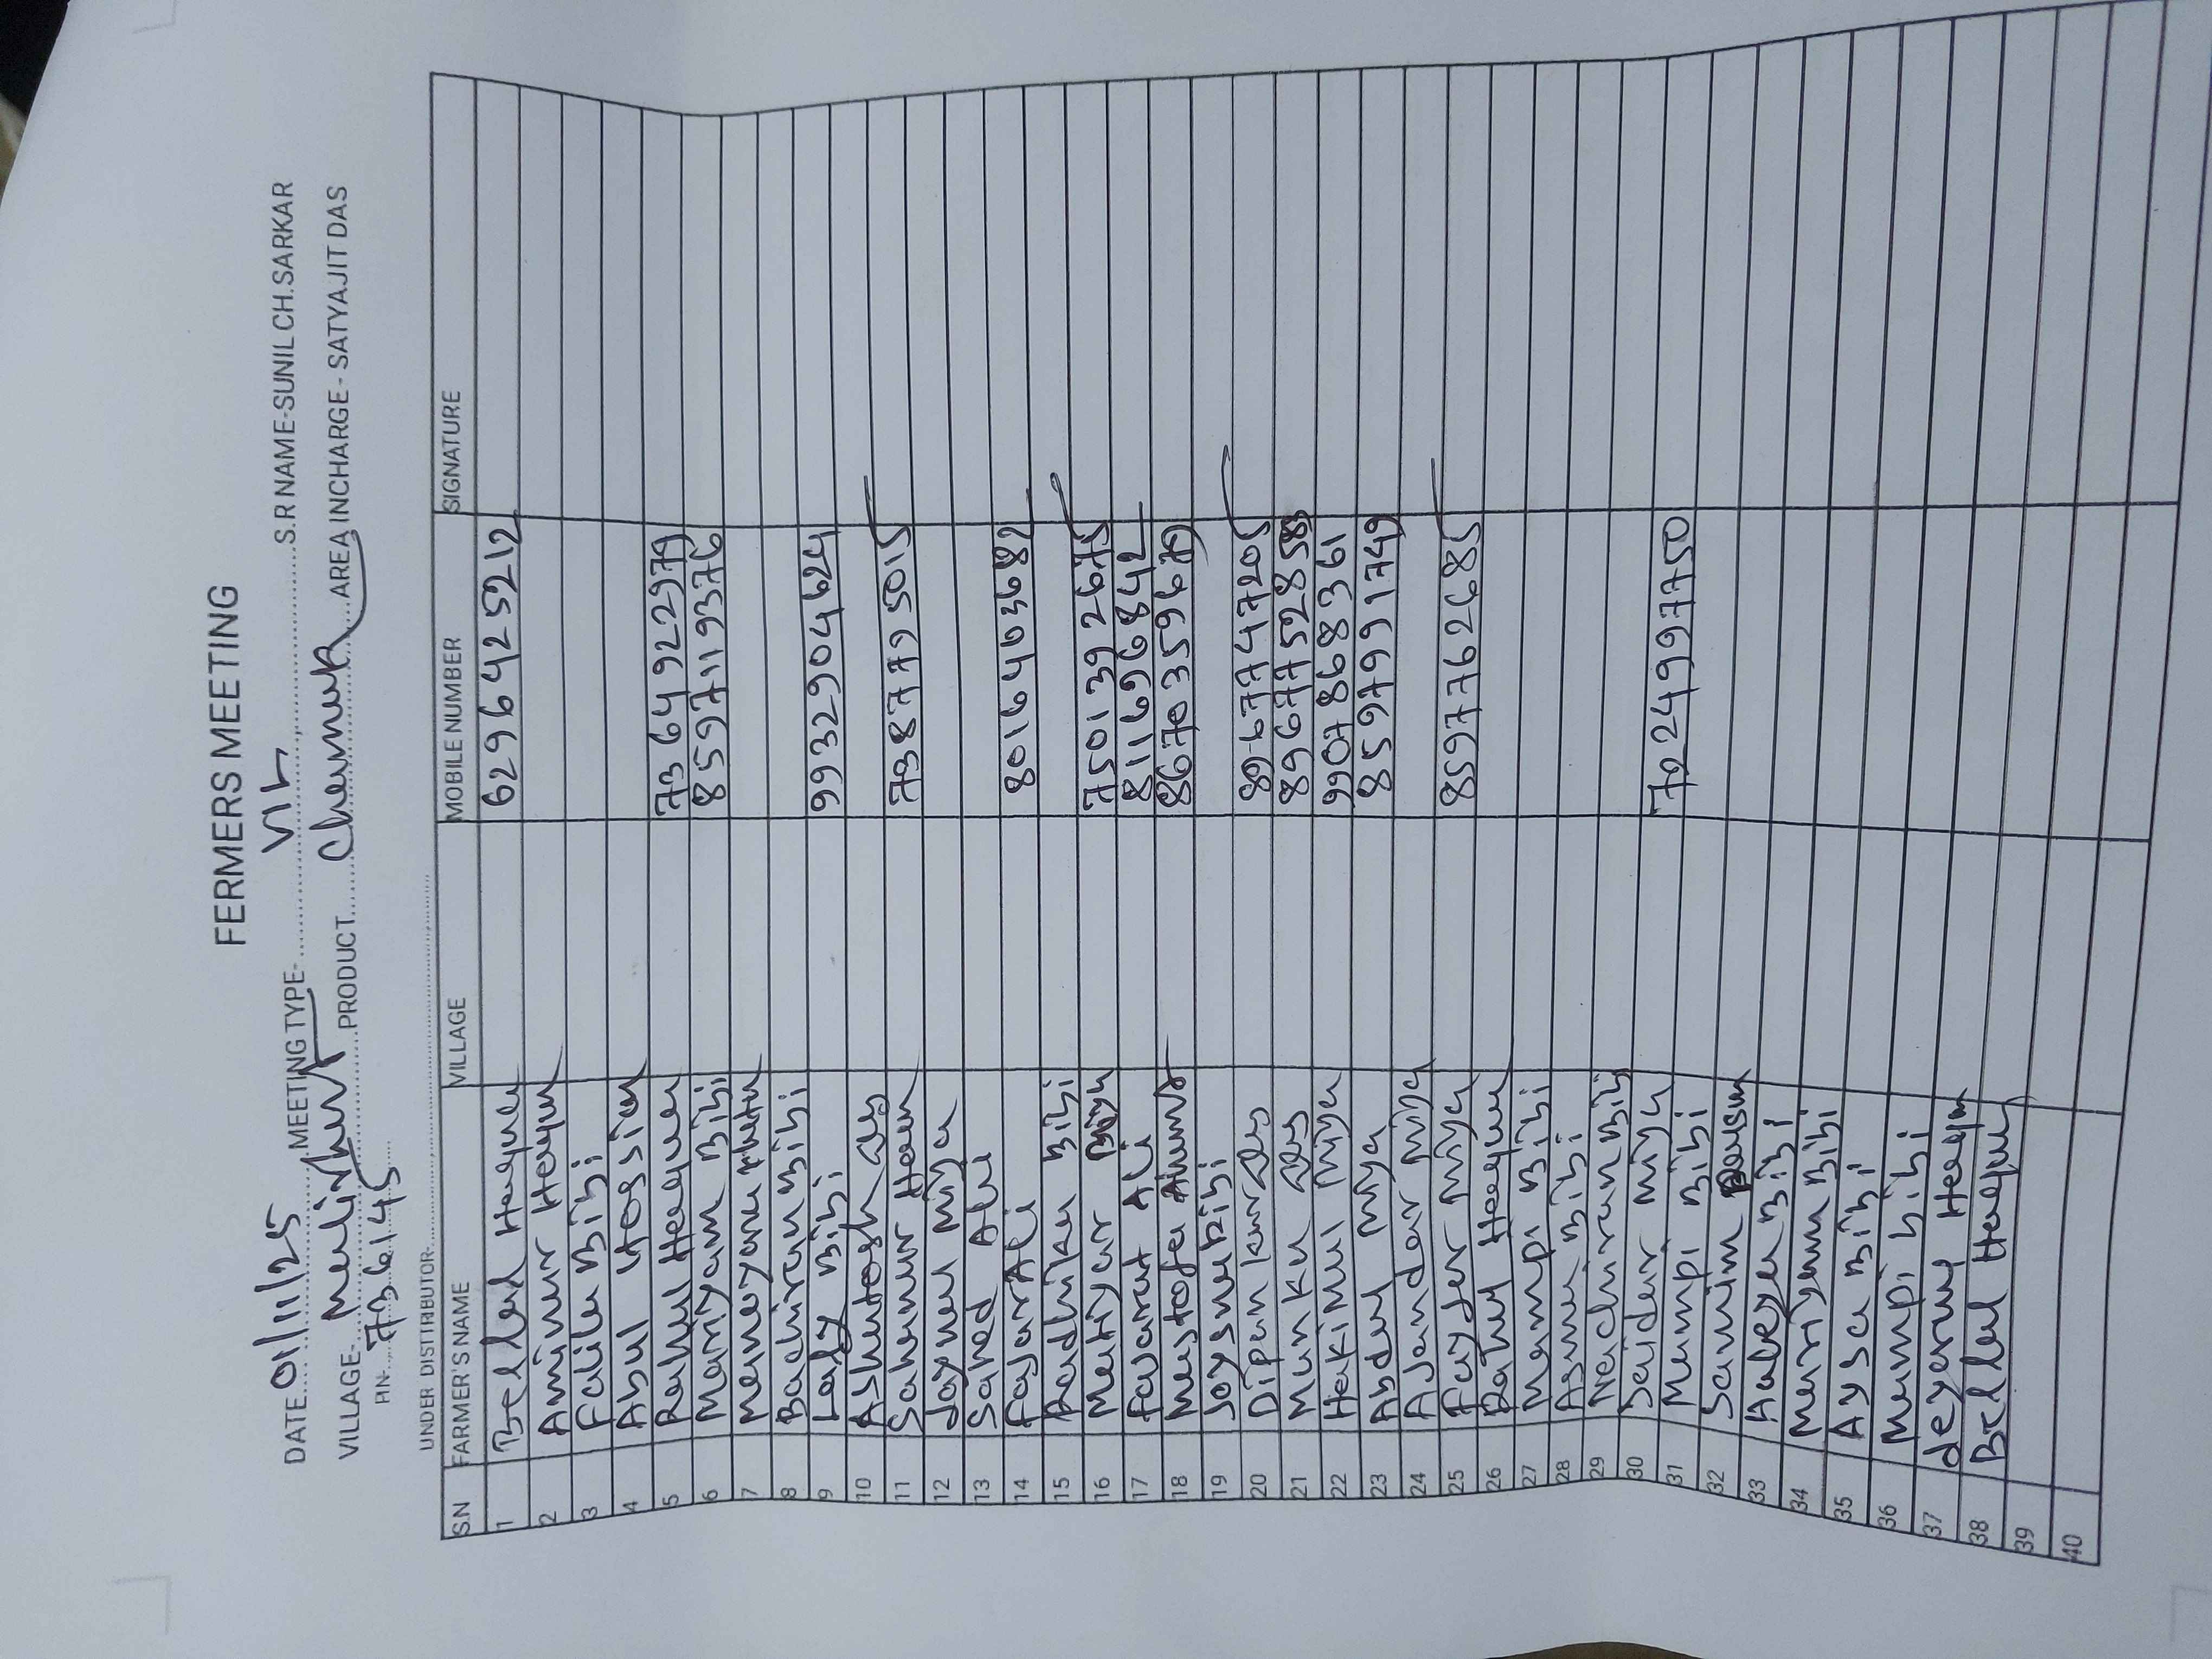 FERMERS MEETING
DATE 01/11/25 MEETING TYPE- VL S.R NAME-SUNIL CH.SARKAR
VILLAGE- PRODUCT AREA INCHARGE- SATYAJIT DAS
PIN- 736145
UNDER DISTTRIBUTOR-
S.N FARMER'S NAME VILLAGE MOBILE NUMBER SIGNATURE
1 Bellal Hoque 6296425212
2 Aminur Hoque
3 Falile Bibi
4 Abul Hossian
5 Rahul Hoque 7364922979
6 Mariyam Bibi 8597119376
7
8 Bachiran Bibi
9 Laly Bibi 9932904624
10 Ashutosh das
11 Sahinur Hoan 7387795015
12 Joynul Miya
13 Sahed Ali
14 Fajar Ali 8016403682
15 Bibi
16 Motiyar Miya 7501392675
17 Favarat Ali 811696842
18 Mustafa 8670359670
19 Joysnu Bibi
20 Dipankar das 8967747205
21 Munku das 8967752858
22 Hakimul Miya 9907868361
23 Abdul Miya 8597991749
24 Ajandar Miya
25 Fayjer Miya 8597762685
26 Batul Hoque
27 Mampi Bibi
28 Asmu Bibi
29 Nachiran Bibi
30 Saidur Miya
31 Mumpi Bibi 7024997750
32 Samim
33 Bibi
34 Bibi
35 Aysa Bibi
36 Mumpi bibi
37
38 Bellal Hoque
39
40